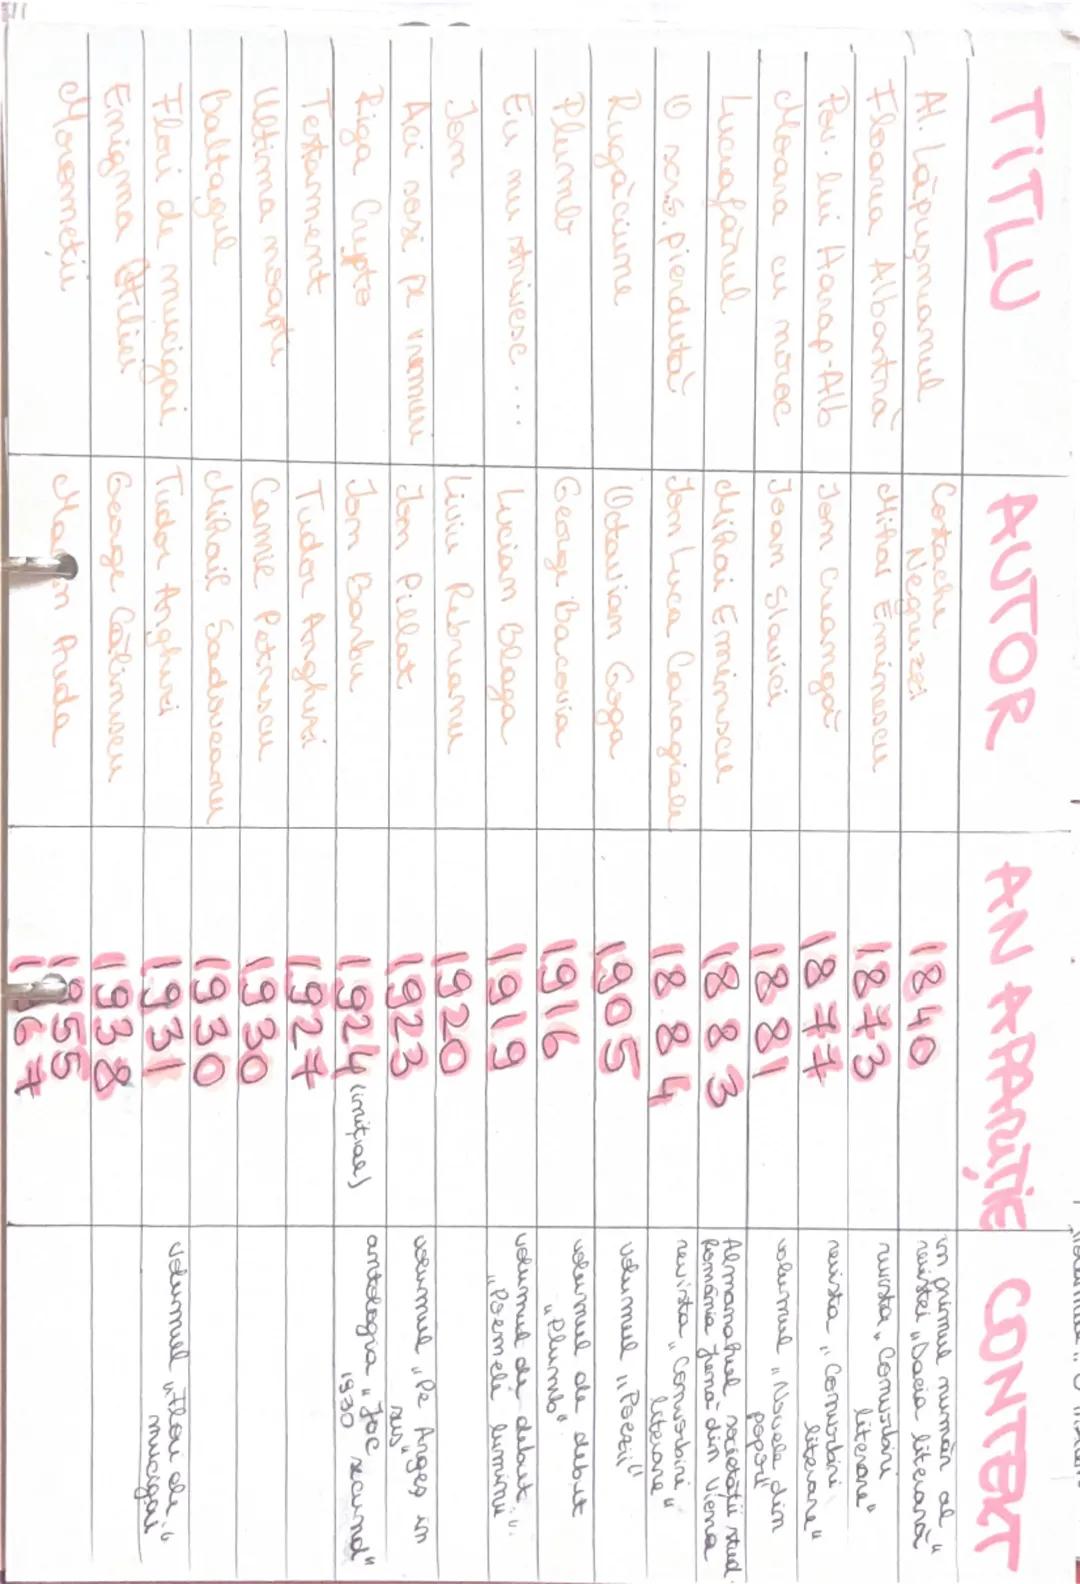 TITLU AUTOR AN APARIȚIE CONTEXT
Al. Lăpușneanul Costache Negruzzi 1840 în primul număr al revistei „Dacia literară"
Floarea Albastră Mihai Eminescu 1873 revista „Convorbiri literare"
Pov. lui Harap-Alb Ion Creangă 1877 revista „Convorbiri literare"
Moara cu noroc Ioan Slavici 1881 volumul „Novele din popor"
Luceafărul Mihai Eminescu 1883 Almanahul societății stud. România Jună din Viena
O scris. pierdută Ion Luca Caragiale 1884 revista „Convorbiri literare"
Rugăciune Octavian Goga 1905 volumul „Poezii"
Plumb George Bacovia 1916 volumul de debut „Plumb"
Eu nu strivesc ... Lucian Blaga 1919 volumul de debut „Poemele luminii"
Ion Liviu Rebreanu 1920
Aci sosi pe vremuri Ion Pillat 1923 volumul „Pe Argeș în sus"
Riga Crypto Ion Barbu 1924 (inițial) antologia „Joc secund" 1930
Testament Tudor Arghezi 1927
Ultima noapte Camil Petrescu 1930
Baltagul Mihail Sadoveanu 1930
Flori de mucigai Tudor Arghezi 1931 volumul „Flori de mucigai"
Enigma Otiliei George Călinescu 1938
Moromeții Preda 1955
1967